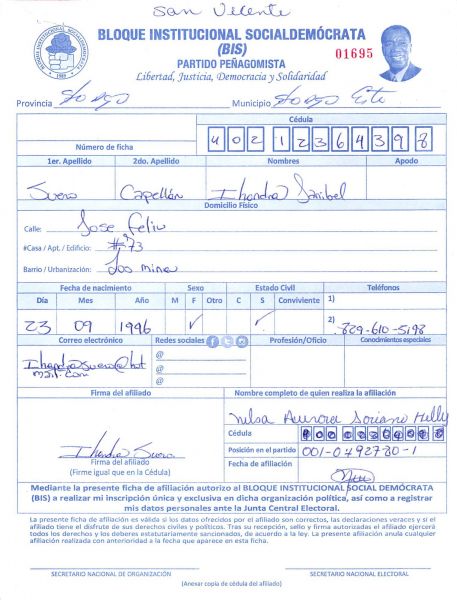 San Vicente
BLOQUE INSTITUCIONAL SOCIALDEMÓCRATA
(BIS)
01695
PARTIDO PEÑAGOMISTA
Libertad, Justicia, Democracia y Solidaridad
Provincia Sto Dgo Municipio Sto Dgo Este
Cédula
Número de ficha 402 1236439 8
1er. Apellido 2do. Apellido Nombres Apodo
Suero Capellán Ihandra Janibel
Domicilio Físico
Calle: Jose Feliu
#Casa / Apt. / Edificio: #73
Barrio / Urbanización: Los mina
Fecha de nacimiento Sexo Estado Civil Teléfonos
Día Mes Año M F Otro C S Conviviente 1)
23 09 1996 ✓ ✓ 2) 829-610-5198
Correo electrónico Redes sociales Profesión/Oficio Conocimientos especiales
Ihandrasuero@hot
mail.com
@
@
@
Firma del afiliado Nombre completo de quien realiza la afiliación
Nilsa Aurora Soriano
Cédula
Ihandra Suero
Posición en el partido 001-0492780-1
Firma del afiliado
(Firme igual que en la Cédula)
Fecha de afiliación
Mediante la presente ficha de afiliación autorizo al BLOQUE INSTITUCIONAL SOCIAL DEMÓCRATA
(BIS) a realizar mi inscripción única y exclusiva en dicha organización política, así como a registrar
mis datos personales ante la Junta Central Electoral.
La presente ficha de afiliación es válida si los datos ofrecidos por el afiliado son correctos, las declaraciones veraces y si el
afiliado tiene el disfrute de sus derechos civiles y políticos. Tras su recepción, sello y firma autorizadas el afiliado ejercerá
todos los derechos y los deberes estatutariamente sancionados, de acuerdo a la ley. La presente afiliación anula cualquier
afiliación realizada con anterioridad a la fecha que aparece en esta ficha.
SECRETARIO NACIONAL DE ORGANIZACIÓN SECRETARIO NACIONAL ELECTORAL
(Anexar copia de cédula del afiliado)